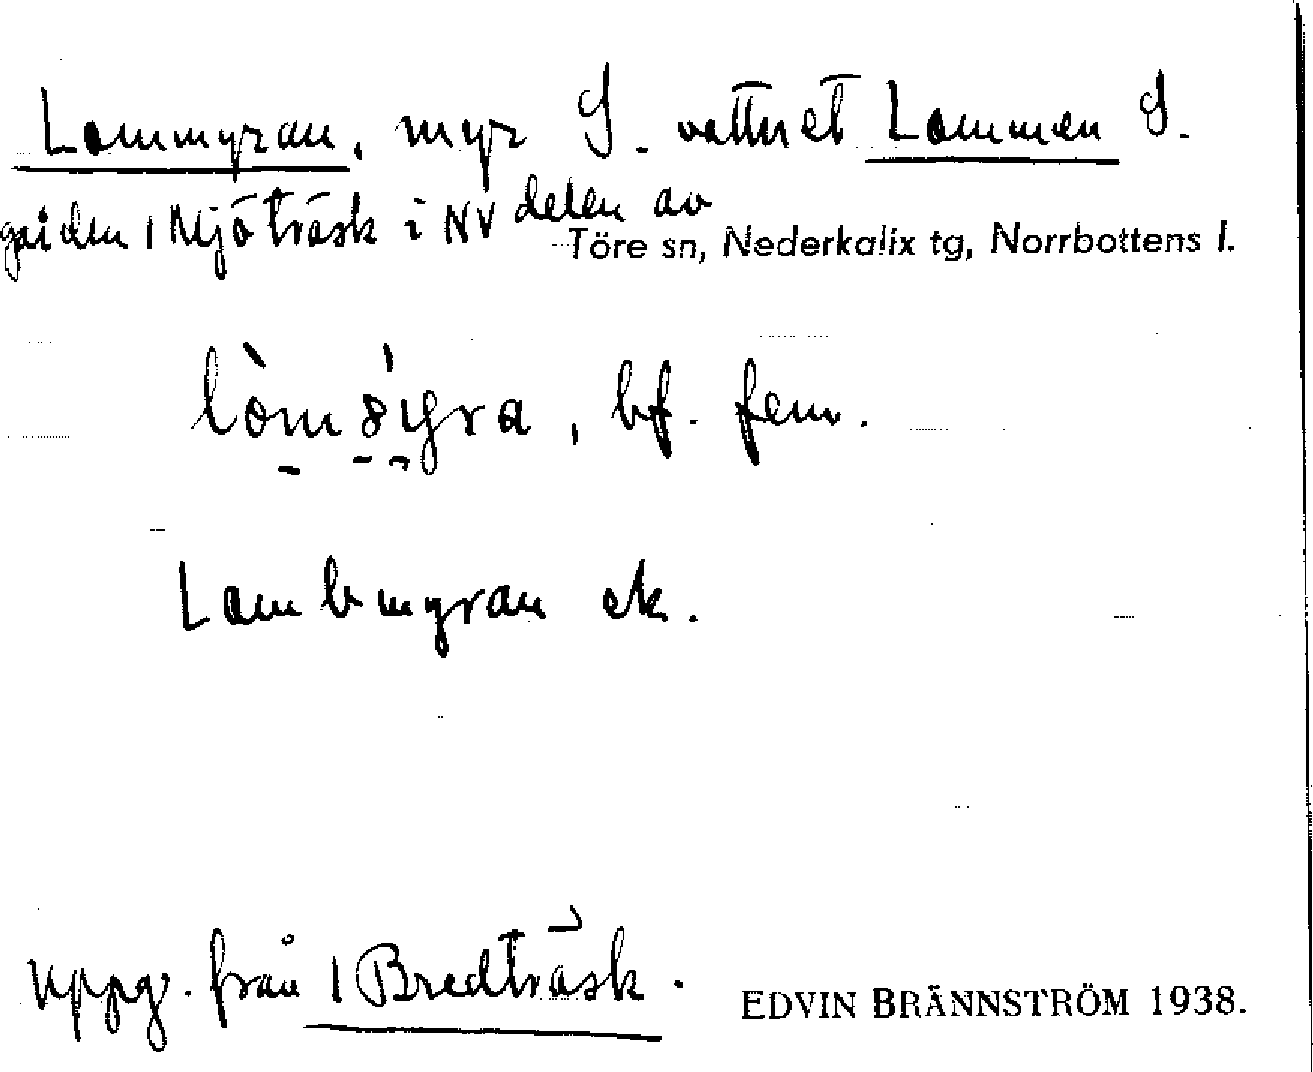 Lommyran, myr S. vattnet Lommen S.
gården 1 Mjöträsk i NV delen av
Töre sn, Nederkalix tg, Norrbottens l.
bf. fem.
Lombmyran ek.
uppg. från 1 Bredträsk.
EDVIN BRÄNNSTRÖM 1938.